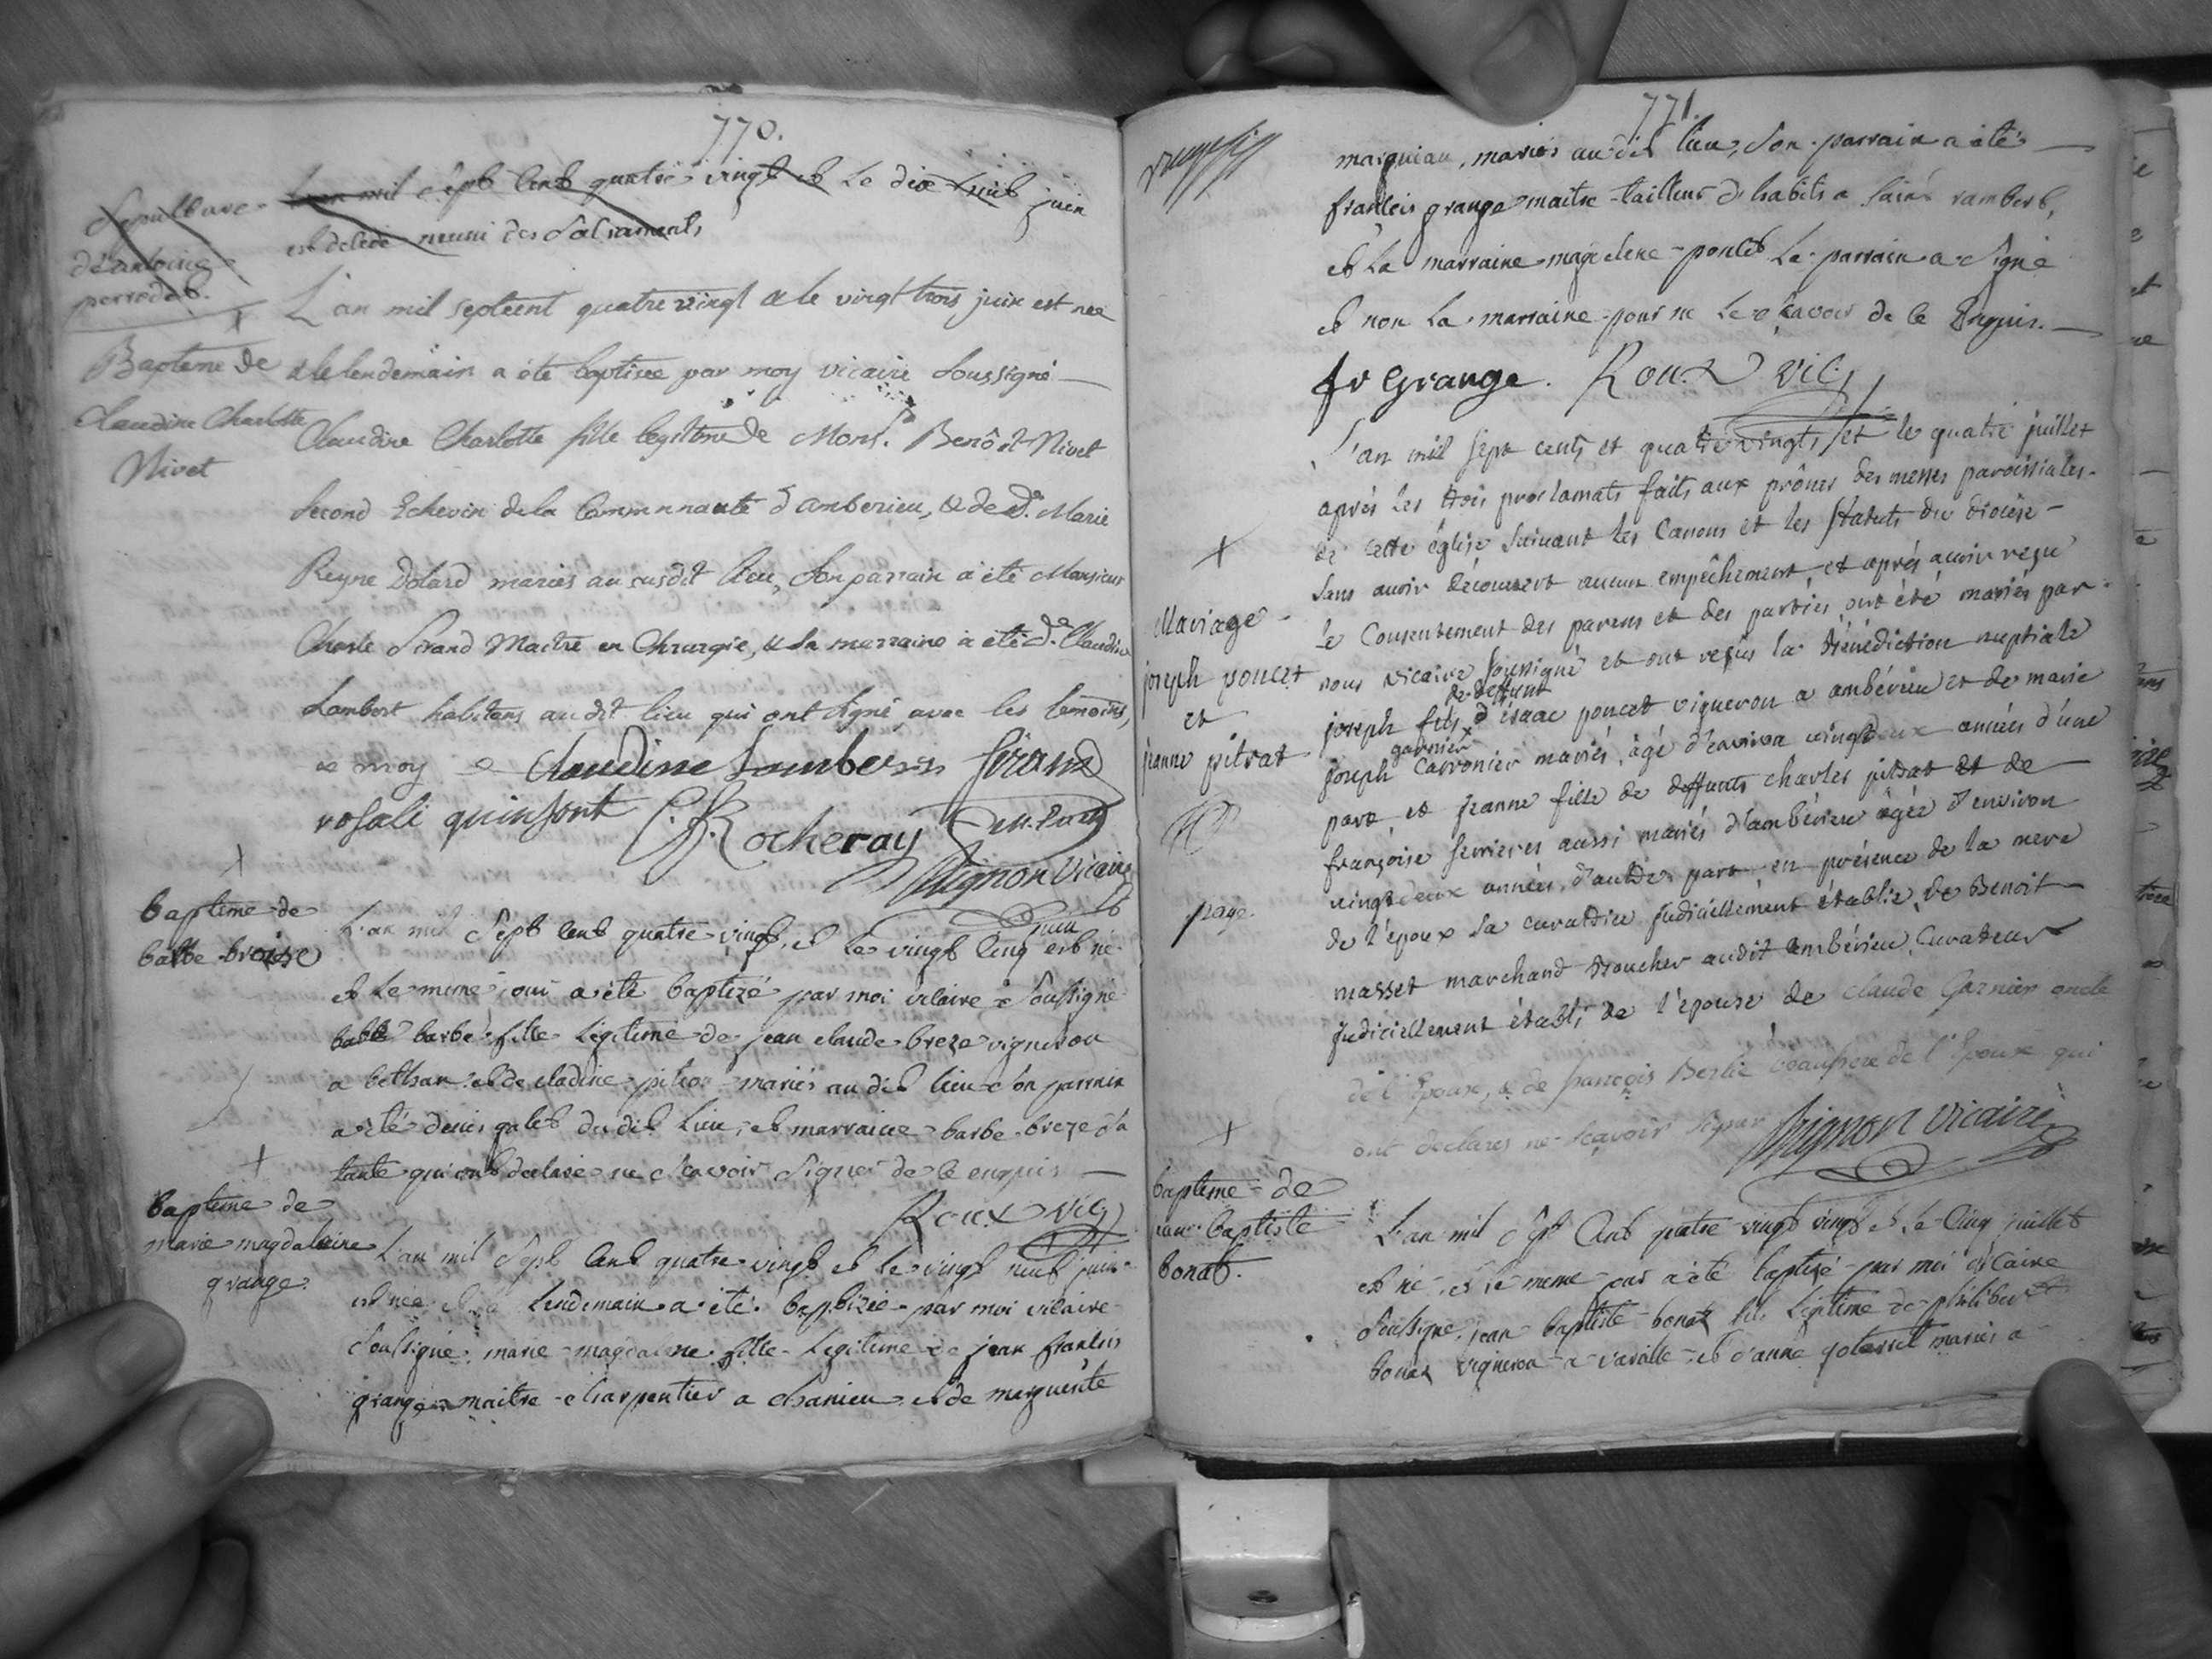 770.
Sepulture
d'antoine
perrodet.
L'an mil sept cent quatre vingt et le dix huit juin
est decede muni des Sacraments
Bapteme de
Claudine Charlotte
Nivet
L'an mil sept cent quatre vingt & le vingt trois juin est nee
& le lendemain a été baptisee par moy vicaire Soussigné
Claudine Charlotte fille legitime de Mons.r Benôit Nivet
Second Echevin de la Communauté d'amberieu, & de De. Marie
Reyne Dolard mariés au susdit lieu, Son parrain a été Monsieur
Charle Sirand Maitre en Chirurgie, & la marraine a été De. Claudine
Lambert habitans audit lieu qui ont signé avec les témoins,
& moy Claudine Lambert Sirand
rosali quinsont C. J. Rocheray
Mignon Vicaire
bapteme de
barbe broise
juin
L'an mil Sept Cent quatre vingt, et le vingt Cinq est né
et le meme jour a été baptizé par moi vicaire Soussigné
barbe fille Légitime de jean claude breze vigneron
a bethan et de cladine pitrat mariés au dit lieu Son parrain
a été denis galet du dit Lieu, et marraine barbe breze Sa
tante qui ont declaré ne Scavoir Signer de ce enquis
Roux vic.
bapteme de
marie magdalaine
grange.
L'an mil Sept Cent quatre vingt et le vingt neuf juin
est nee et le lendemain a été baptizée par moi vicaire
Soussigné marie magdalene fille Legitime de jean francois
grange maitre charpentier a chanieu et de marguerite
771.
marguian, mariés au dit lieu, Son parrain a été
francois grange maitre tailleur d'habits a saint rambert,
et La marraine magdelene poncet Le parrain a Signé
et non La marraine pour ne Le Scavoir de ce Enquis.
fr Grange. Roux vic.
Mariage
joseph poncet
et
jeanne pitrat
page.
L'an mil sept cents et quatre vingts et le quatre juillet
après les trois proclamats faits aux prônes des messes paroissiales
de cette église suivant les Canons et les Statuts du diocèse
sans avoir découvert aucun empêchement et après avoir reçu
le Consentement des parens et des parties, ont été mariés par
nous vicaire soussigné et ont reçus la Bénédiction nuptiale
de deffunt
joseph fils d'isaac poncet vigneron a ambérieu et de marie
garnier
joseph Carronier mariés, âgé d'environ vingt deux années d'une
part et jeanne fille de deffunts charles pitrat et de
françoise serrieres aussi mariés d'ambérieu âgée d'environ
vingt deux années, d'autre part en présence de la mere
de l'époux sa curatrice judiciellement établie, de Benoit
masset marchand Boucher audit Ambérieu, Curateur
judiciellement établi de l'épouse de claude Garnier oncle
de l'Epoux, & de françois Berlie beaufrere de l'Epoux qui
ont declarés ne sçavoir signer Mignon Vicaire
bapteme de
jean baptiste
bonat.
L'an mil Sept Cent quatre vingt vingt et Le Cinq juillet
est né et le meme jour a été baptizé par moi vicaire
Soussigné, jean baptiste bonat fils Légitime de philibert
bonat vigneron a vareille et d'anne mariés a